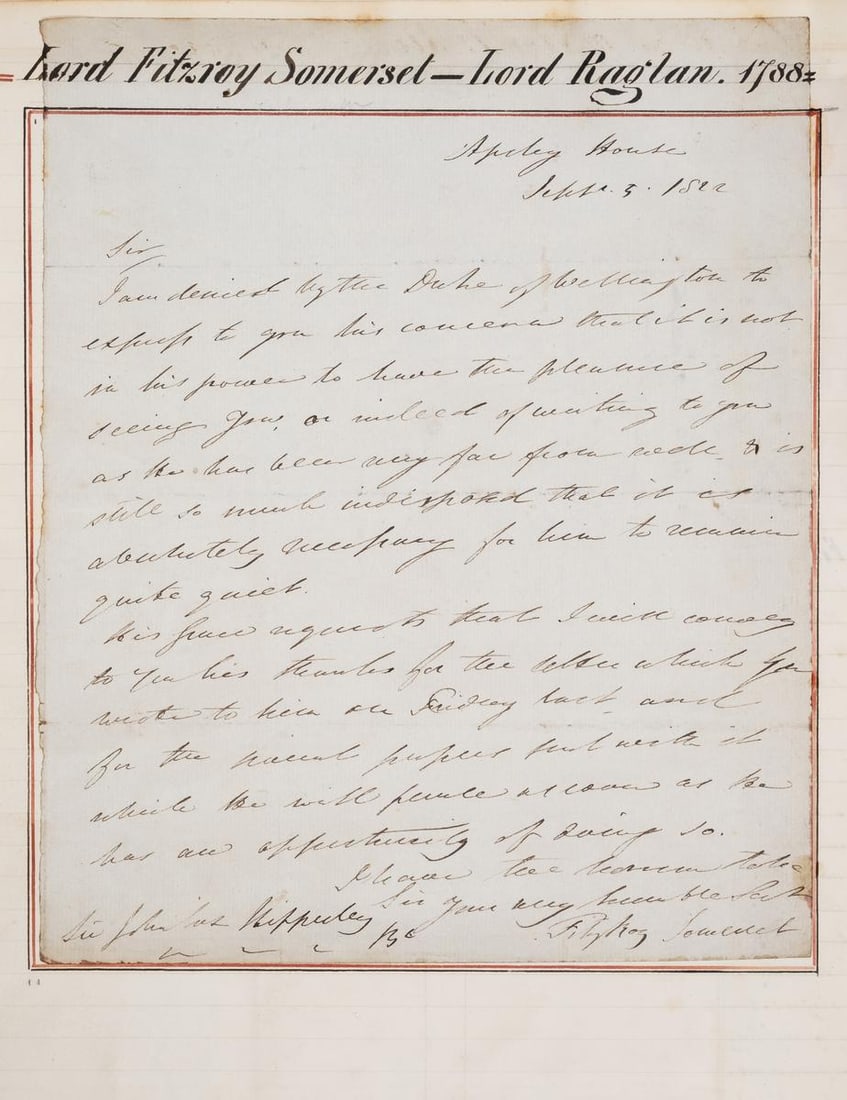 Lord Fitzroy Somerset — Lord Raglan. 1788=
Apsley House
Septr. 5. 1822
Sir
I am desired by the Duke of Wellington to
express to you his concern that it is not
in his power to have the pleasure of
seeing you, or indeed of writing to you
as He has been very far from well & is
still so much indisposed that it is
absolutely necessary for him to remain
quite quiet.
His Grace requests that I will convey
to You his thanks for the letter which You
wrote to him on Friday last and
for the papers sent with it
which He will peruse as soon as He
has an opportunity of doing so.
I have the honour to be
Sir Your very humble Servt
FitzRoy Somerset
Sir John Cox Hippisley Bt